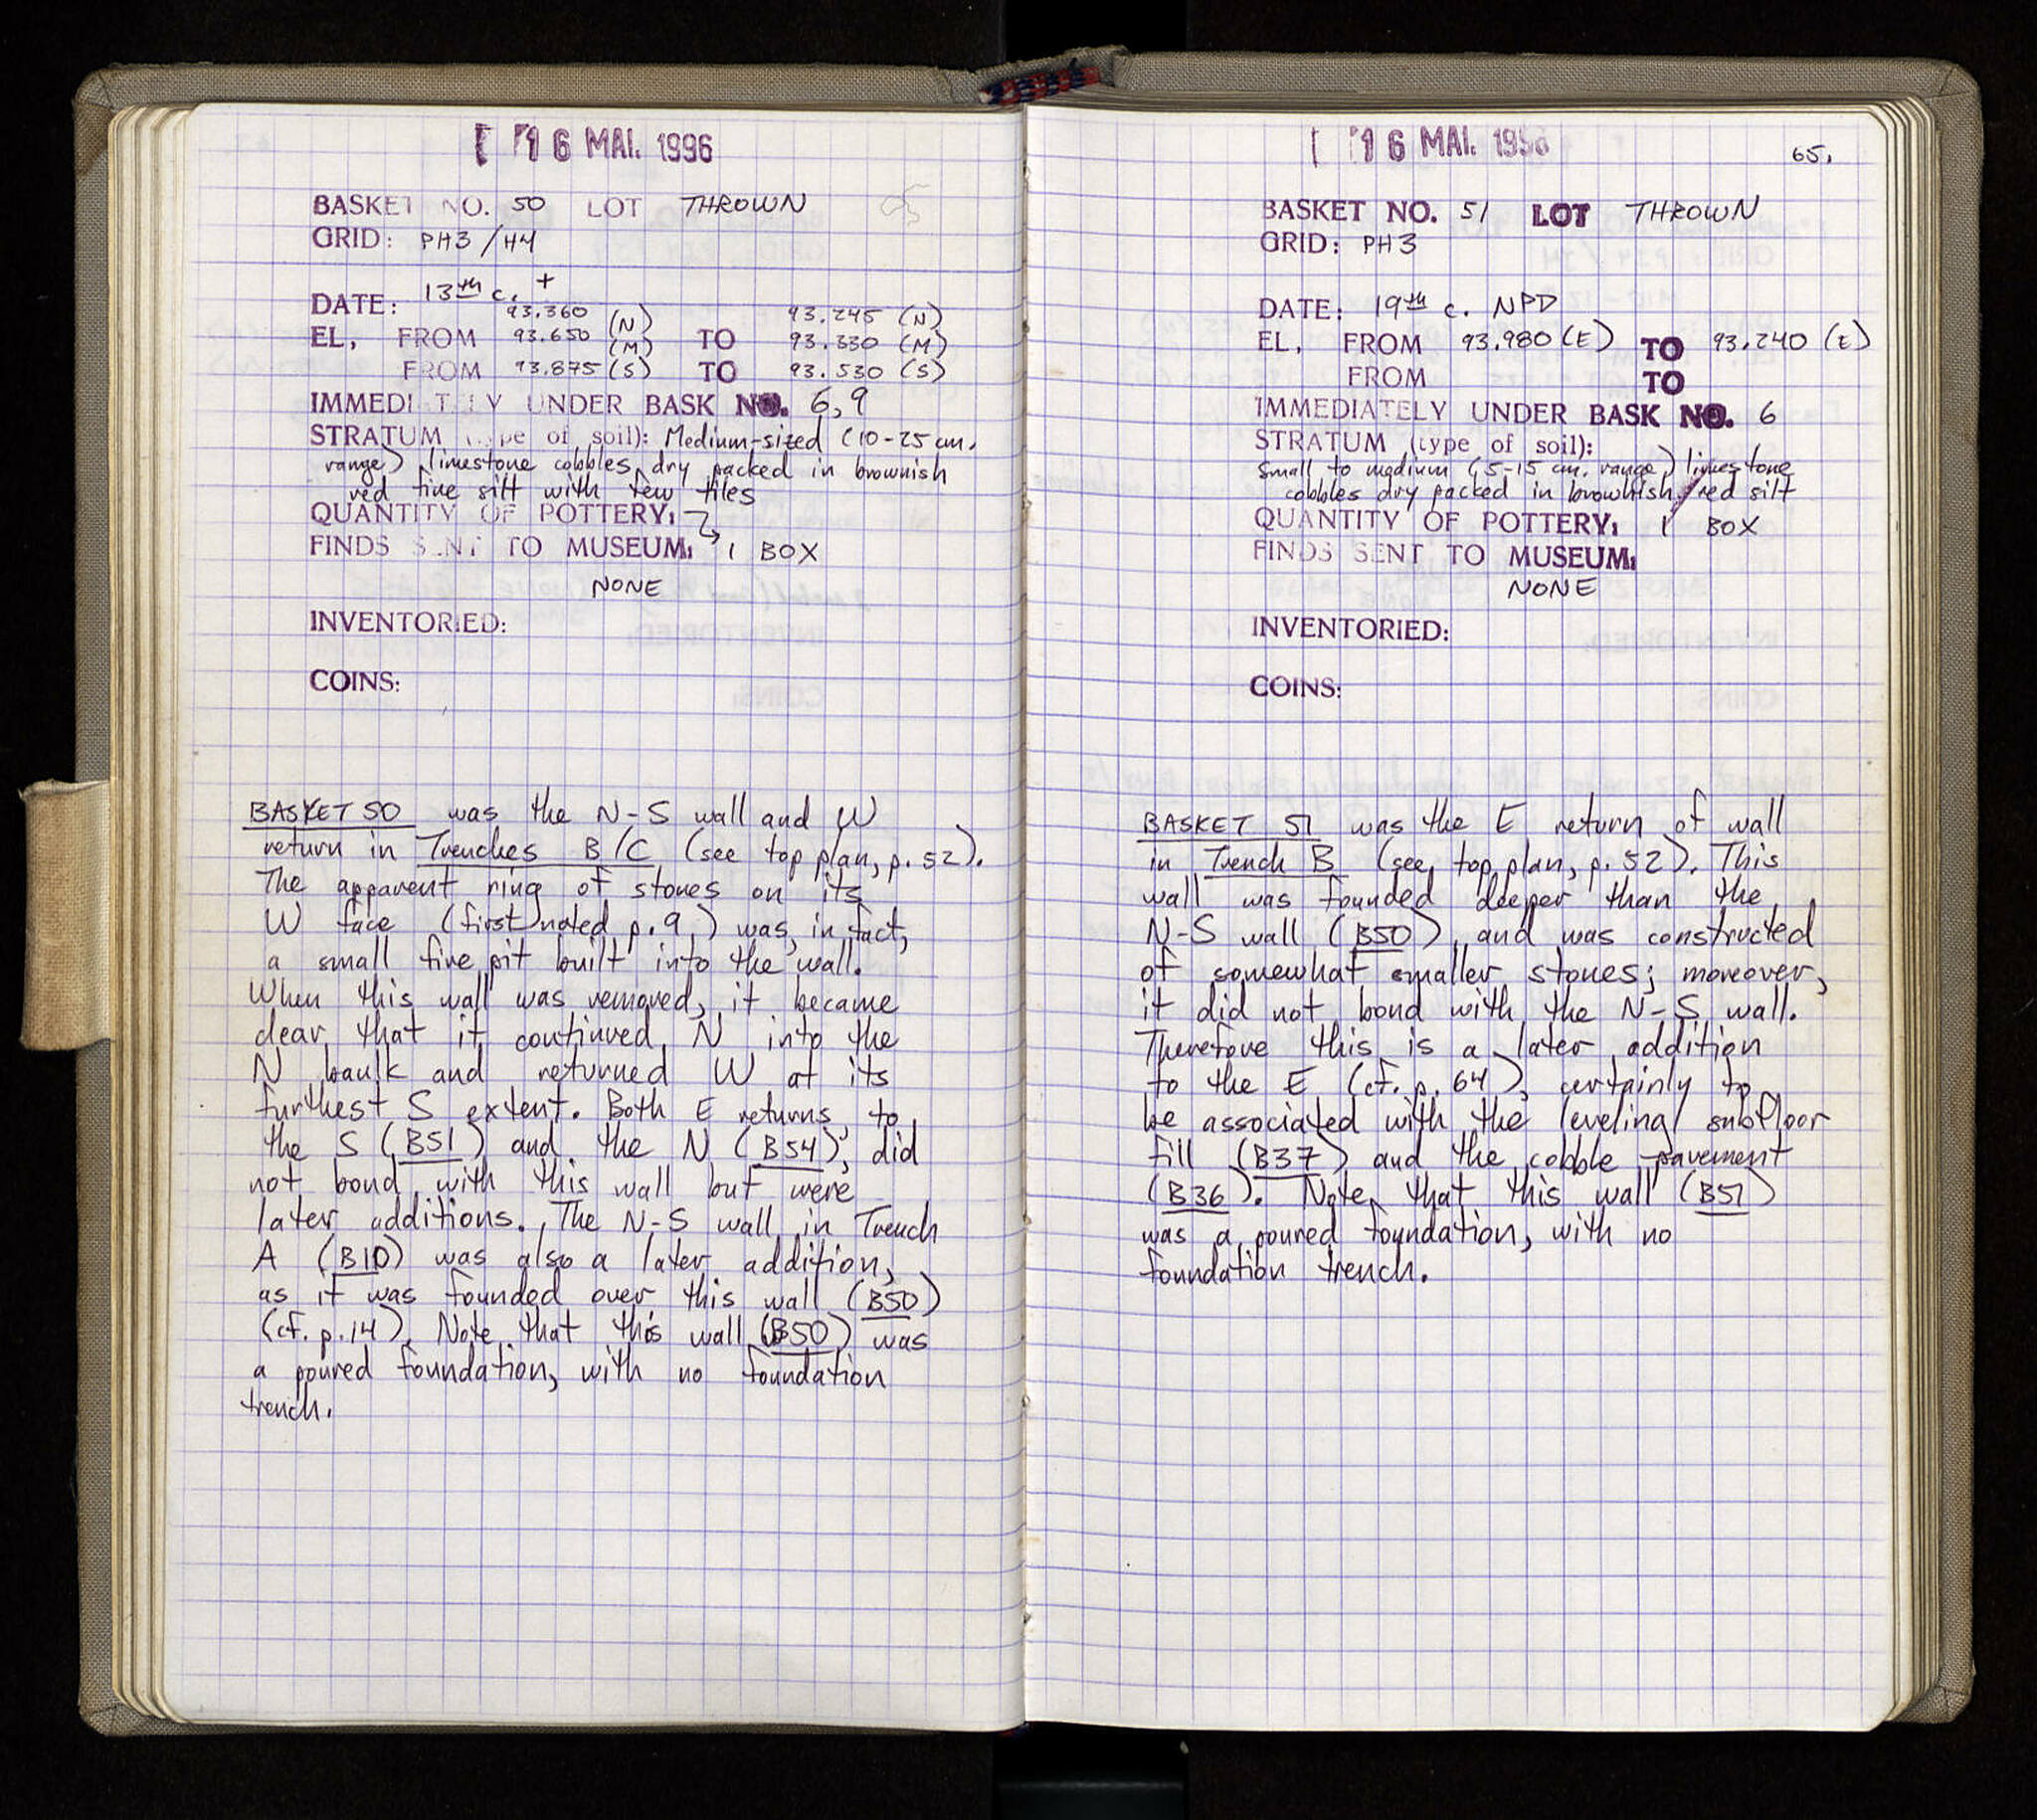 16 MAI. 1996
BASKET NO. 50 LOT THROWN
GRID: PH3/H4
DATE: 13th c. +
EL, FROM 93.360 (N) TO 93.245 (N)
93.650 (M) 93.330 (M)
FROM 93.875 (S) TO 93.530 (S)
IMMEDIATELY UNDER BASK NO. 6, 9
STRATUM (type of soil): Medium-sized (10-25 cm.
range) limestone cobbles dry packed in brownish
red fine silt with few tiles
QUANTITY OF POTTERY:
FINDS SENT TO MUSEUM: 1 BOX
NONE
INVENTORIED:
COINS:
BASKET 50 was the N-S wall and W
return in Trenches B/C (see top plan, p. 52).
The apparent ring of stones on its
W face (first noted p. 9) was, in fact,
a small fire pit built into the wall.
When this wall was removed, it became
clear that it continued N into the
N baulk and returned W at its
furthest S extent. Both E returns, to
the S (B51) and the N (B54), did
not bond with this wall but were
later additions. The N-S wall in Trench
A (B10) was also a later addition,
as it was founded over this wall (B50)
(cf. p. 14). Note that this wall (B50) was
a poured foundation, with no foundation
trench.
16 MAI. 1996
65.
BASKET NO. 51 LOT THROWN
GRID: PH3
DATE: 19th c. NPD
EL, FROM 93.980 (E) TO 93.240 (E)
FROM TO
IMMEDIATELY UNDER BASK NO. 6
STRATUM (type of soil):
Small to medium (5-15 cm. range) limestone
cobbles dry packed in brownish red silt
QUANTITY OF POTTERY: 1 BOX
FINDS SENT TO MUSEUM:
NONE
INVENTORIED:
COINS:
BASKET 51 was the E return of wall
in Trench B (see top plan, p. 52). This
wall was founded deeper than the
N-S wall (B50), and was constructed
of somewhat smaller stones; moreover,
it did not bond with the N-S wall.
Therefore this is a later addition
to the E (cf. p. 64), certainly to
be associated with the leveling/subfloor
fill (B37) and the cobble pavement
(B36). Note that this wall (B51)
was a poured foundation, with no
foundation trench.